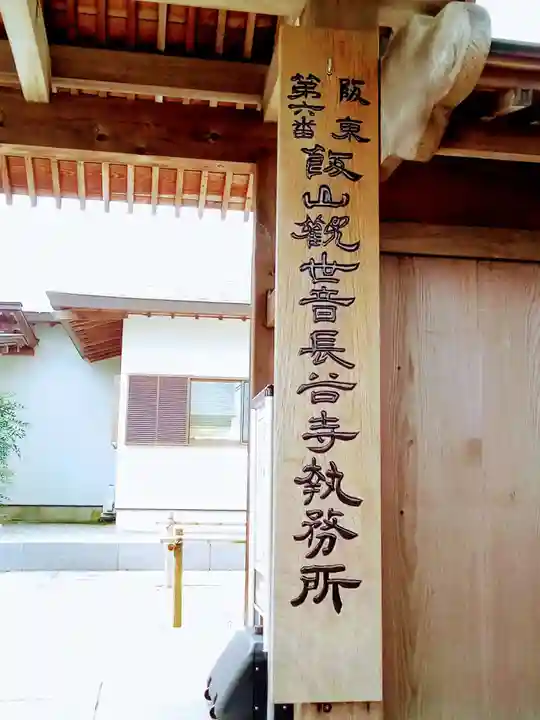 阪東
第六番
飯山観世音長谷寺執務所